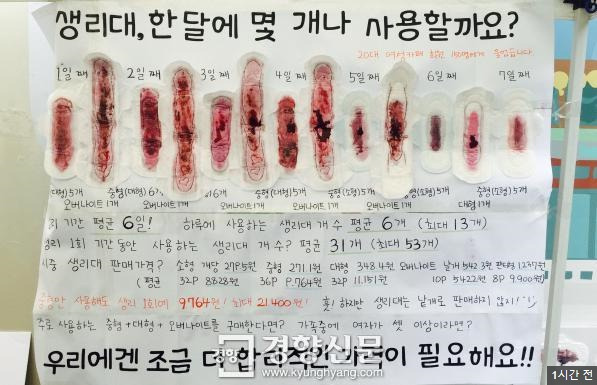 생리대, 한 달에 몇 개나 사용할까요?
20대 여성카페 회원 150명에게 물었습니다
1일 째 2일 째 3일 째 4일 째 5일 째 6일 째 7일 째
(대형)5개 중형(대형)6개 6개 중형(대형)5개 중형(소형)5개 중형(소형)5개 중형(소형)5개
오버나이트1개 오버나이트1개 오버나이트1개 오버나이트1개 대형1개
기간 평균 6일! 하루에 사용하는 생리대 개수 평균 6개 (최대 13개)
1회 기간동안 사용하는 생리대 개수? 평균 31개 (최대 53개)
시중 생리대 판매가격? 소형 개당 중형 271.1원 대형 348.4원 오버나이트 낱개 542.3원
(평균 32P 8828원 36P 9.764원 32P 11.151원 10P 5422원 8P 9.900원)
중형만 사용해도 생리 1회에 9764원! 최대 21.400원! 흥! 하지만 생리대는 낱개로 판매하지 않지!
주로 사용하는 중형+대형+오버나이트를 구매한다면? 가족중에 여자가 셋 이상이라면?
우리에겐 조금 더 합리적인 가격이 필요해요!!
경향 경향신문
www.kyunghyang.com
1시간 전